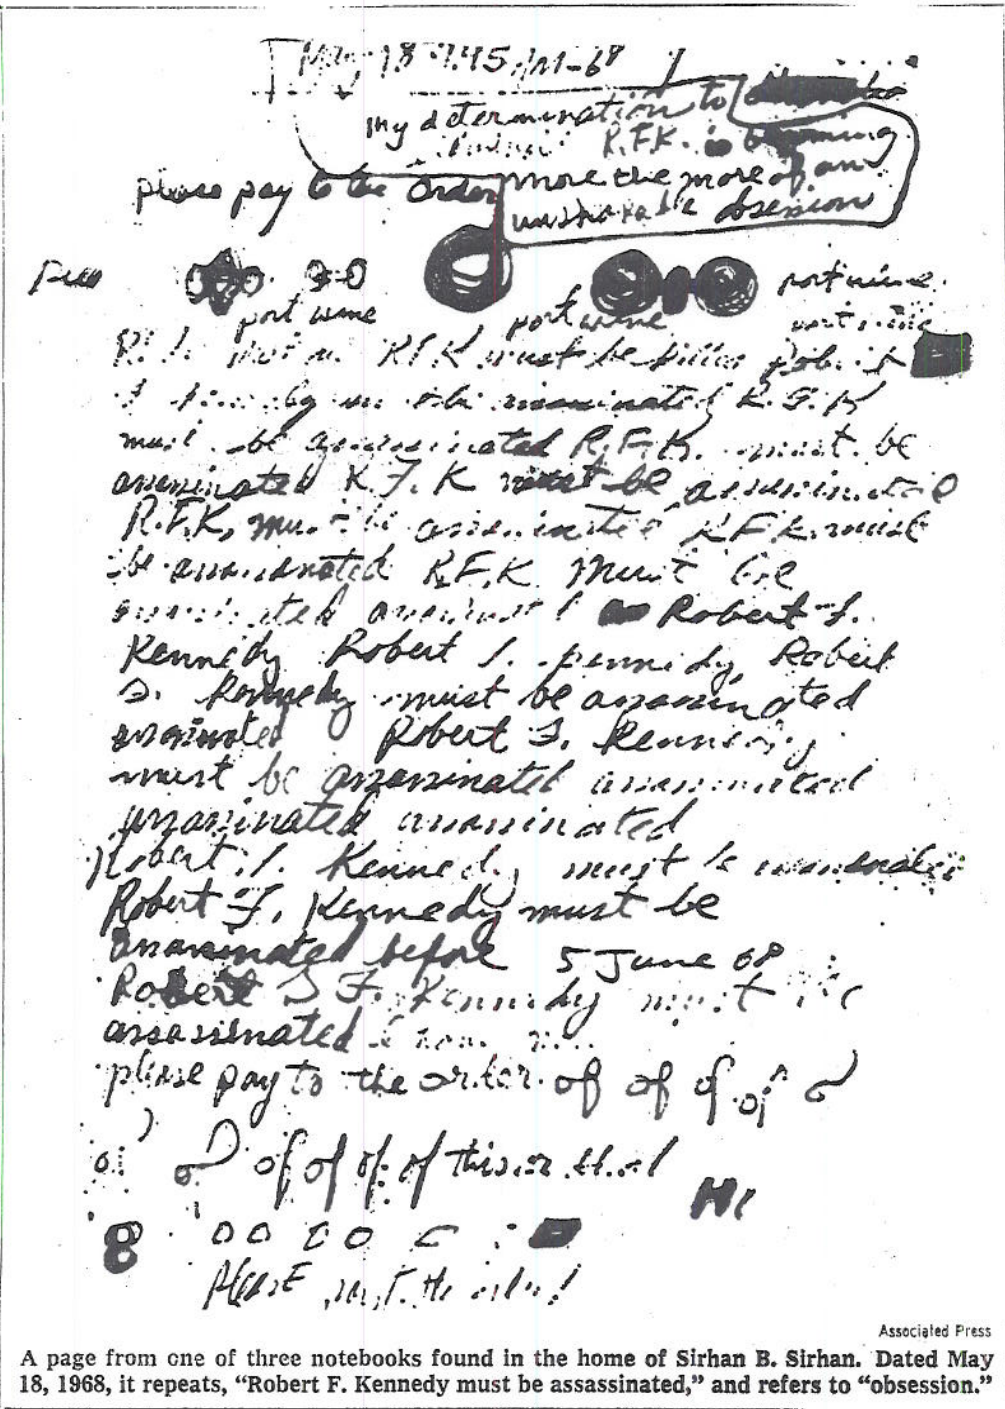 May 18 9.45 AM-68
my determination to
R.F.K. is becoming
please pay to the order
more the more of an
unshakable obsession
port wine
port wine port wine
R.F.K must be killed Robert
R.F.K
must be assassinated R.F.K. must be
assassinated R.F.K must be assassinated
R.F.K. must be assassinated R.F.K. must
be assassinated R.F.K. must be
assassinated Robert F.
Kennedy Robert F. Kennedy Robert
F. Kennedy must be assassinated
assassinated Robert F. Kennedy
must be assassinated assassinated
assassinated assassinated
Robert F. Kennedy must be assassinated
Robert F. Kennedy must be
assassinated before 5 June 68
Robert F. Kennedy must be
assassinated
please pay to the order of of of of
of of of of this or that
Hi
8 00 00
Please
Associated Press
A page from one of three notebooks found in the home of Sirhan B. Sirhan. Dated May
18, 1968, it repeats, “Robert F. Kennedy must be assassinated,” and refers to “obsession.”